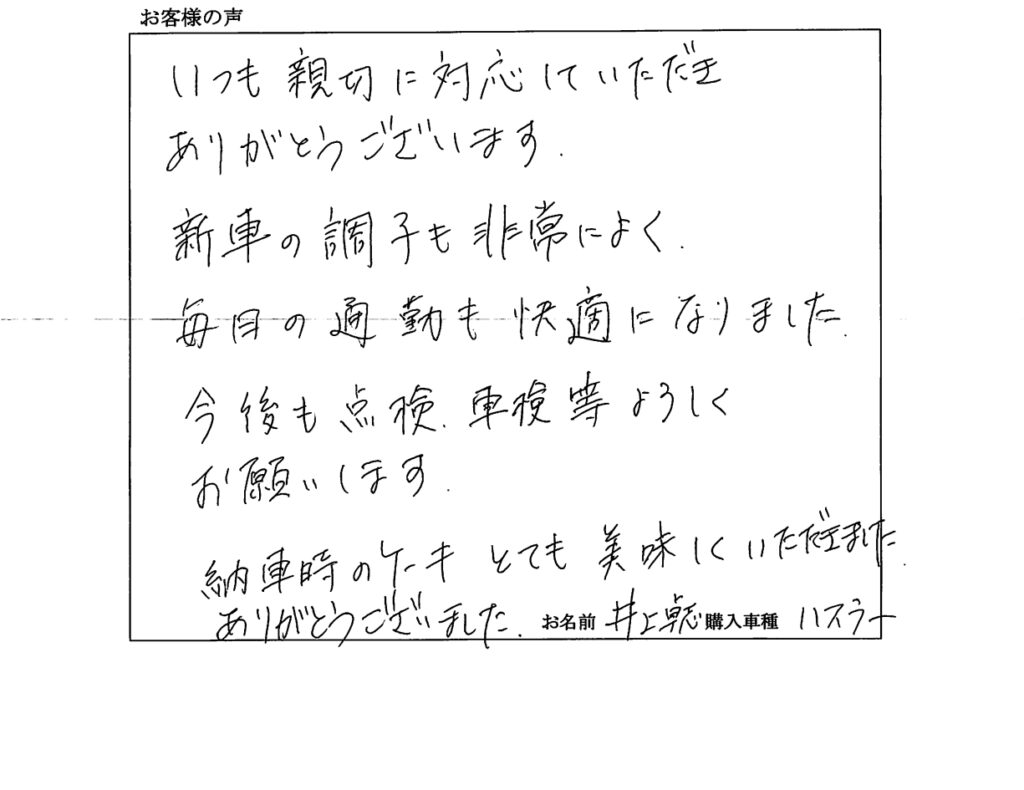 お客様の声
いつも親切に対応していただき
ありがとうございます.
新車の調子も非常によく.
毎日の通勤も快適になりました.
今後も点検.車検等よろしく
お願いします.
納車時のケーキとても美味しくいただきました.
ありがとうございました.
お名前 井上卓志 購入車種 ハスラー